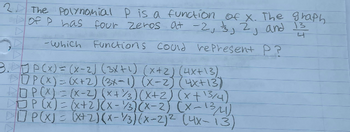 2. The Polynomial P is a function of x. The graph
of P has four zeros at -2, ⅓, 2, and 13/4
-which functions could represent P?
3. □ P(x) = (x-2)(3x+1)(x+2)(4x+13)
□ P(x) = (x+2)(3x-1)(x-2)(4x+13)
□ P(x) = (x-2)(x+⅓)(x+2)(x+13/4)
□ P(x) = (x+2)(x-⅓)(x-2)(x-13/4)
□ P(x) = (x+2)(x-⅓)(x-2)² (4x-13)